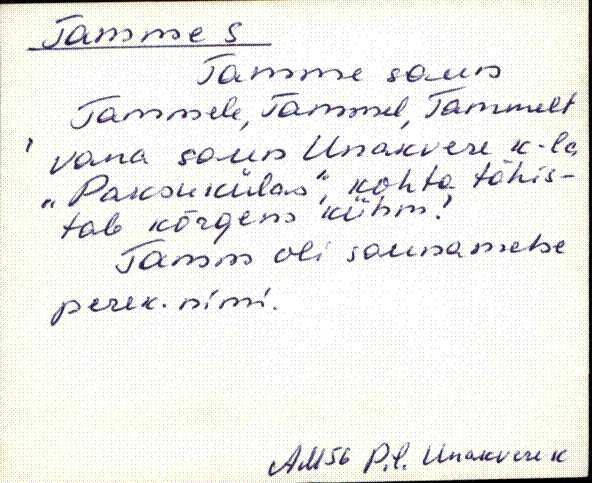 Tamme s
Tamme saun
Tammele, Tammel, Tammelt
vana saun Unakvere k-la
„Paksukülas“, kohta tähis-
tab kõrgem kühm.
Tamm oli saunamehe
perek. nimi.
AM56 P.l. Unakvere k